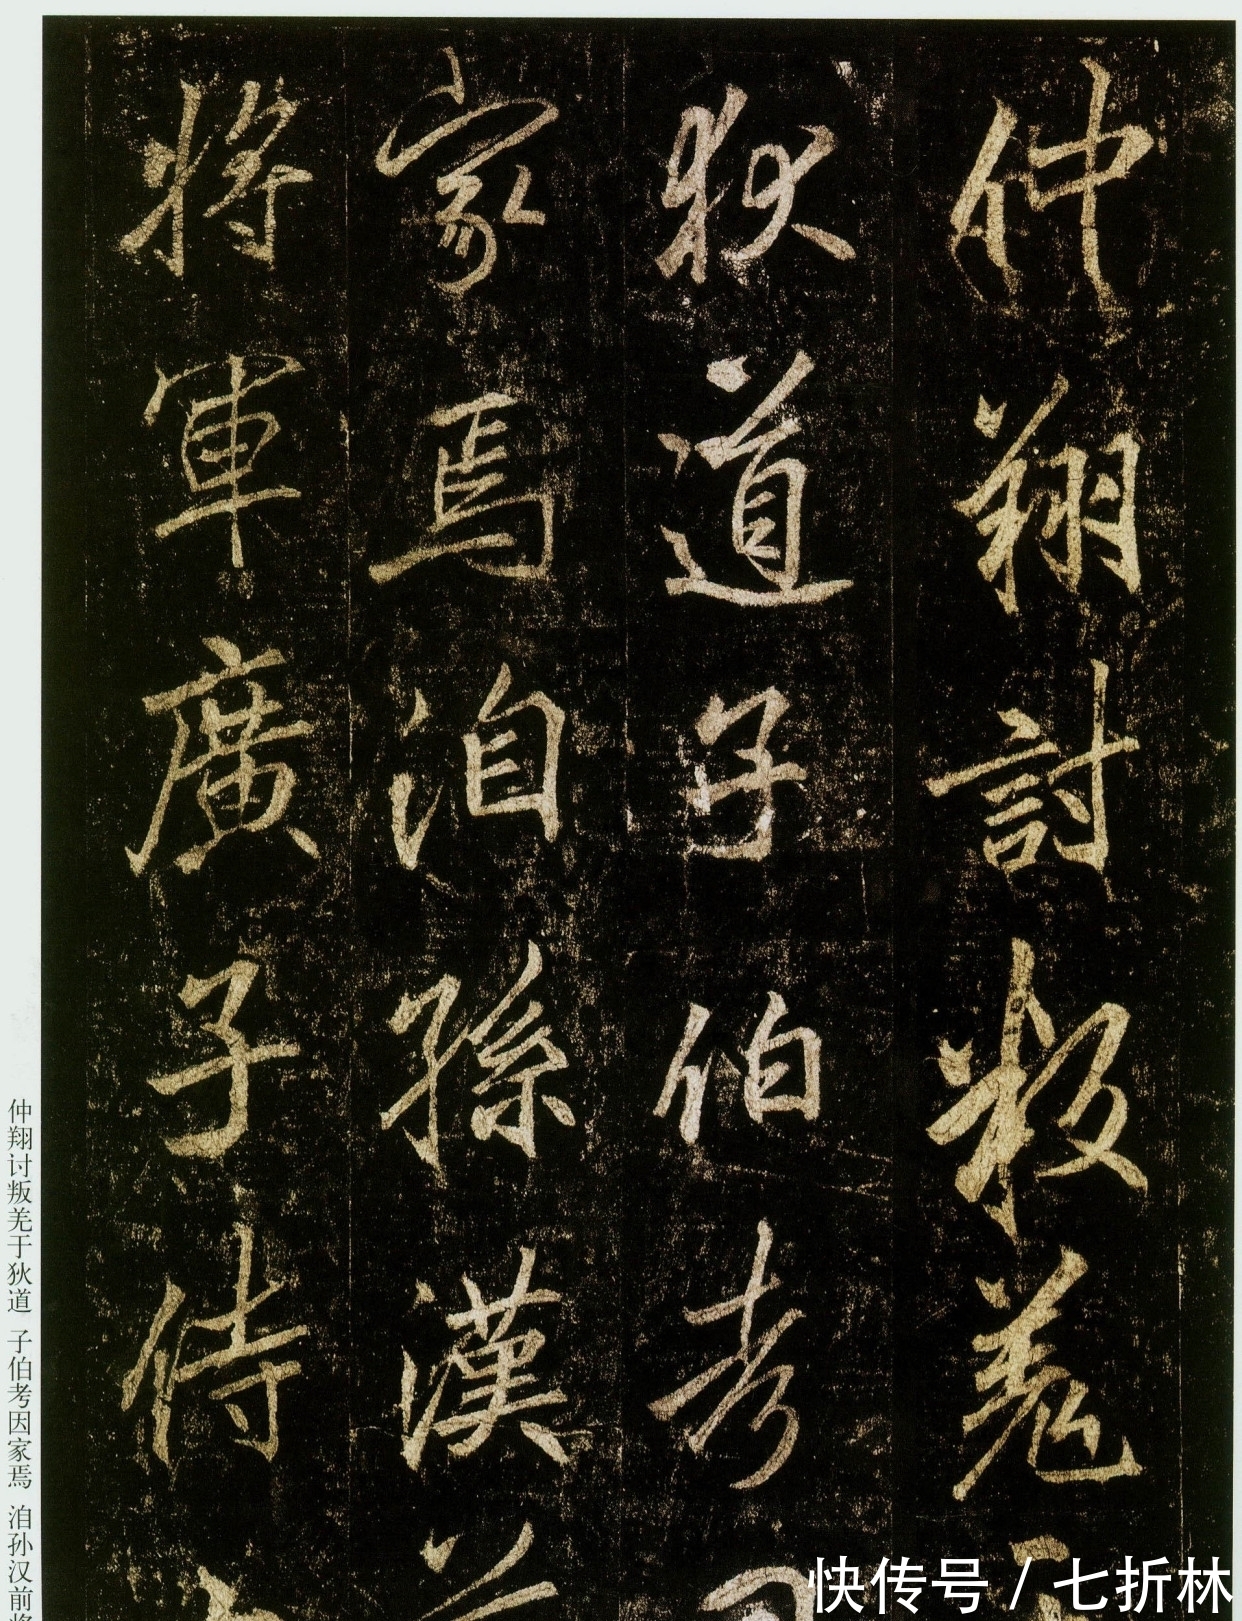 仲翔討叛羌
狄道子伯考
家焉洎孫漢
將軍廣子侍
仲翔讨叛羌于狄道 子伯考因家焉 洎孙汉前将
快传号 / 七折林